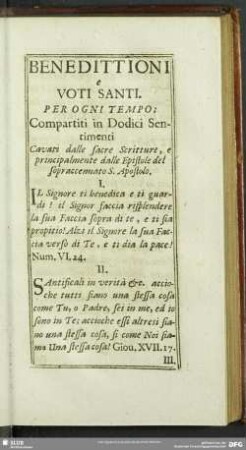 BENEDITTIONI
e
VOTI SANTI.
PER OGNI TEMPO:
Compartiti in Dodici Sen-
timenti
Cavati dalle sacre Scritture, e
principalmente dalle Epistole del
sopraccennato S. Apostolo.
I.
IL Signore ti benedica e ti guar-
di! il Signor faccia risplendere
la sua Faccia sopra di te, e ti sia
propitio! Alzi il Signore la sua Fac-
cia verso di Te, e ti dia la pace!
Num. VI. 24.
II.
SAntificali in verità &c. accio-
che tutti siano una stessa cosa
come Tu, o Padre, sei in me, ed io
sono in Te; accioche essi altresi sia-
no una stessa cosa, si come Noi sia-
mo Una stessa cosa! Giov. XVII. 17.
III.
SLUB